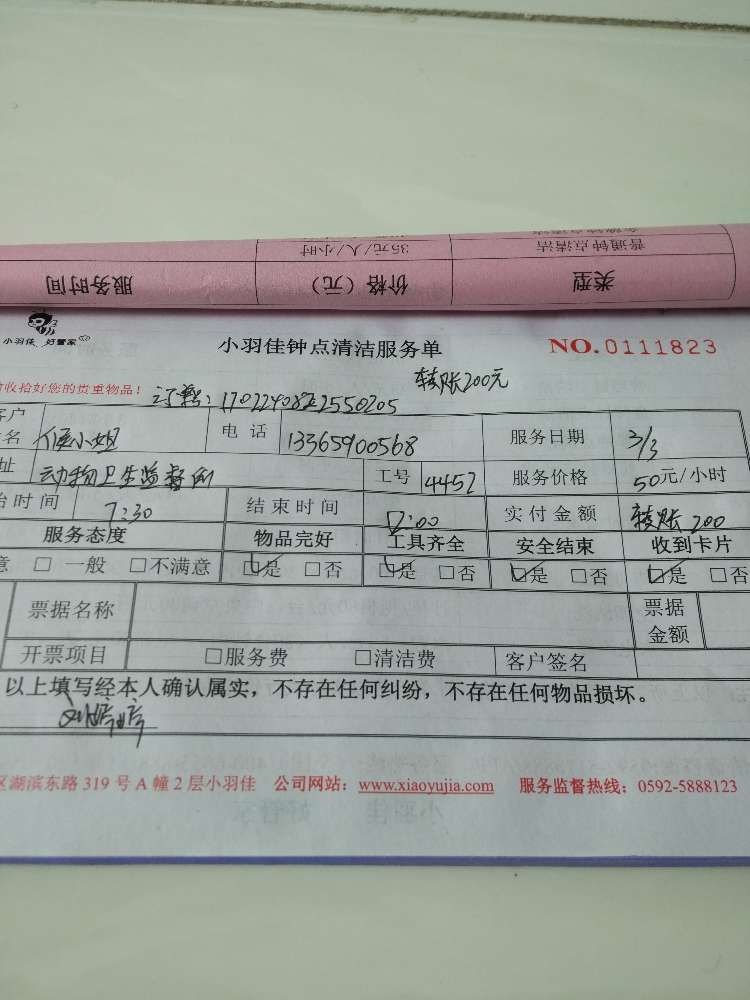 35元/人/小时
普通钟点清洁
服务时间
价格（元）
类型
小羽佳 好管家
小羽佳钟点清洁服务单
NO.0111823
收拾好您的贵重物品！
转账200元
客户
名
电话
13365900568
服务日期
3/3
址
动物卫生监督所
工号
4452
服务价格
50元/小时
始时间
7:30
结束时间
12:00
实付金额
转账 200
服务态度
物品完好
工具齐全
安全结束
收到卡片
意 □ 一般 □不满意
☑是 □否
☑是 □否
☑是 □否
☑是 □否
票据名称
票据
金额
开票项目
□服务费
□清洁费
客户签名
以上填写经本人确认属实，不存在任何纠纷，不存在任何物品损坏。
区湖滨东路 319 号 A 幢 2 层小羽佳 公司网站：www.xiaoyujia.com 服务监督热线：0592-5888123